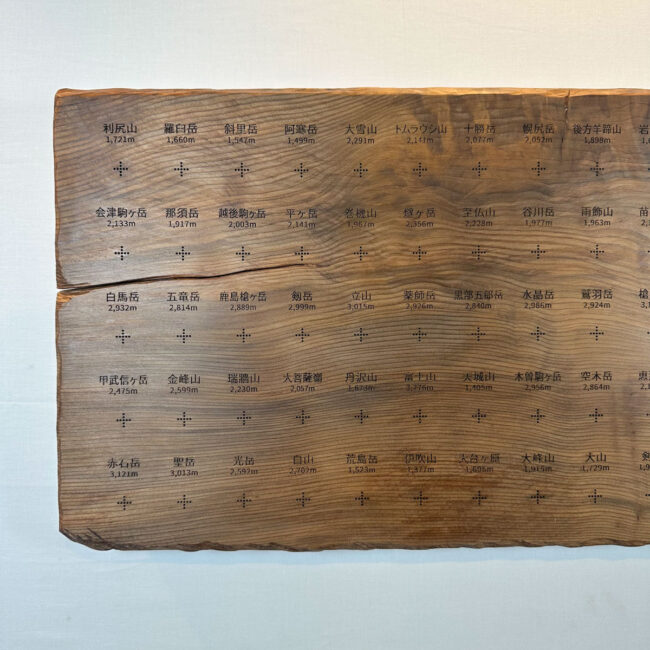 利尻山 羅臼岳 斜里岳 阿寒岳 大雪山 トムラウシ山 十勝岳 幌尻岳 後方羊蹄山 岩
1,721m 1,660m 1,547m 1,499m 2,291m 2,141m 2,077m 2,052m 1,898m
会津駒ヶ岳 那須岳 越後駒ヶ岳 平ヶ岳 巻機山 燧ヶ岳 至仏山 谷川岳 雨飾山 苗
2,133m 1,917m 2,003m 2,141m 1,967m 2,356m 2,228m 1,977m 1,963m
白馬岳 五竜岳 鹿島槍ヶ岳 剱岳 立山 薬師岳 黒部五郎岳 水晶岳 鷲羽岳 槍
2,932m 2,814m 2,889m 2,999m 3,015m 2,926m 2,840m 2,986m 2,924m
甲武信ヶ岳 金峰山 瑞牆山 大菩薩嶺 丹沢山 富士山 天城山 木曽駒ヶ岳 空木岳
2,475m 2,599m 2,230m 2,057m 1,673m 3,776m 1,405m 2,956m 2,864m
赤石岳 聖岳 光岳 白山 荒島岳 伊吹山 大台ヶ原 大峰山 大山
3,121m 3,013m 2,592m 2,702m 1,523m 1,377m 1,695m 1,915m 1,729m